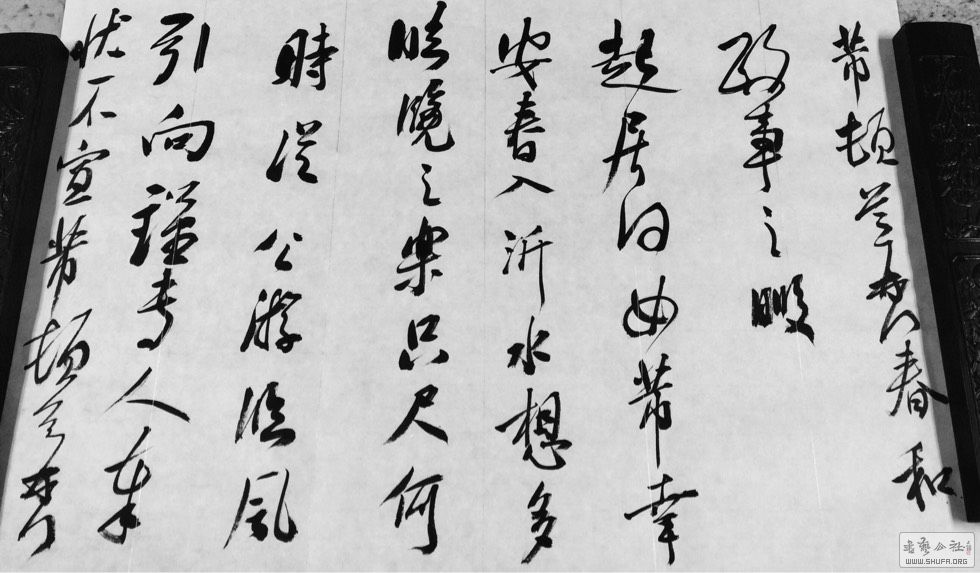 芾頓首再拜春和
政事之暇
起居何如芾幸
安春入沂水想多
臨覽之樂只尺何
時從公游臨風
引向謹專人奉
狀不宣芾頓首再拜
書藝公社
WWW.SHUFA.ORG